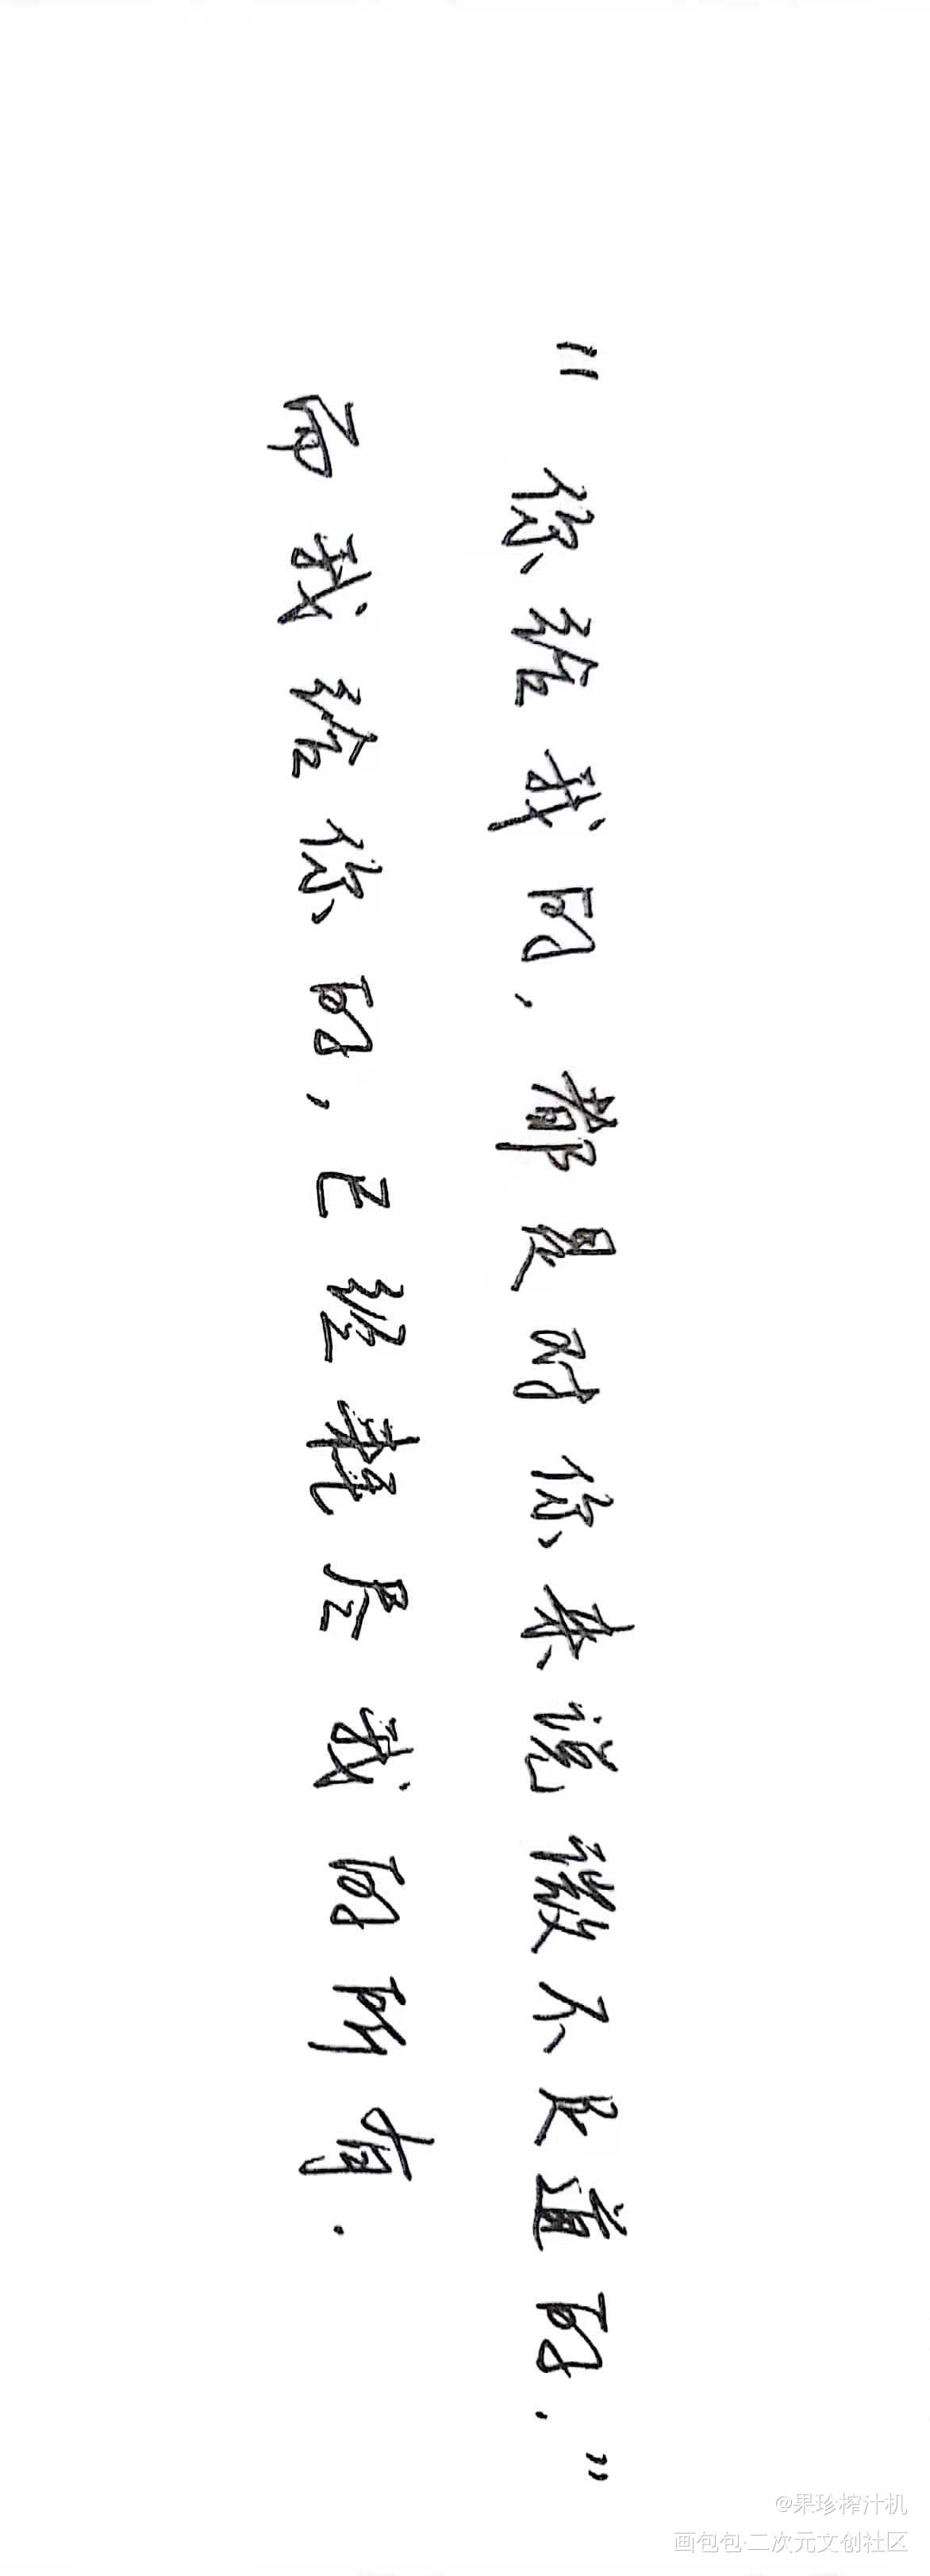 “你给我的，都是对你来说微不足道的.”
而我给你的，已经耗尽我的所有.
@果珍榨汁机
画包包·二次元文创社区